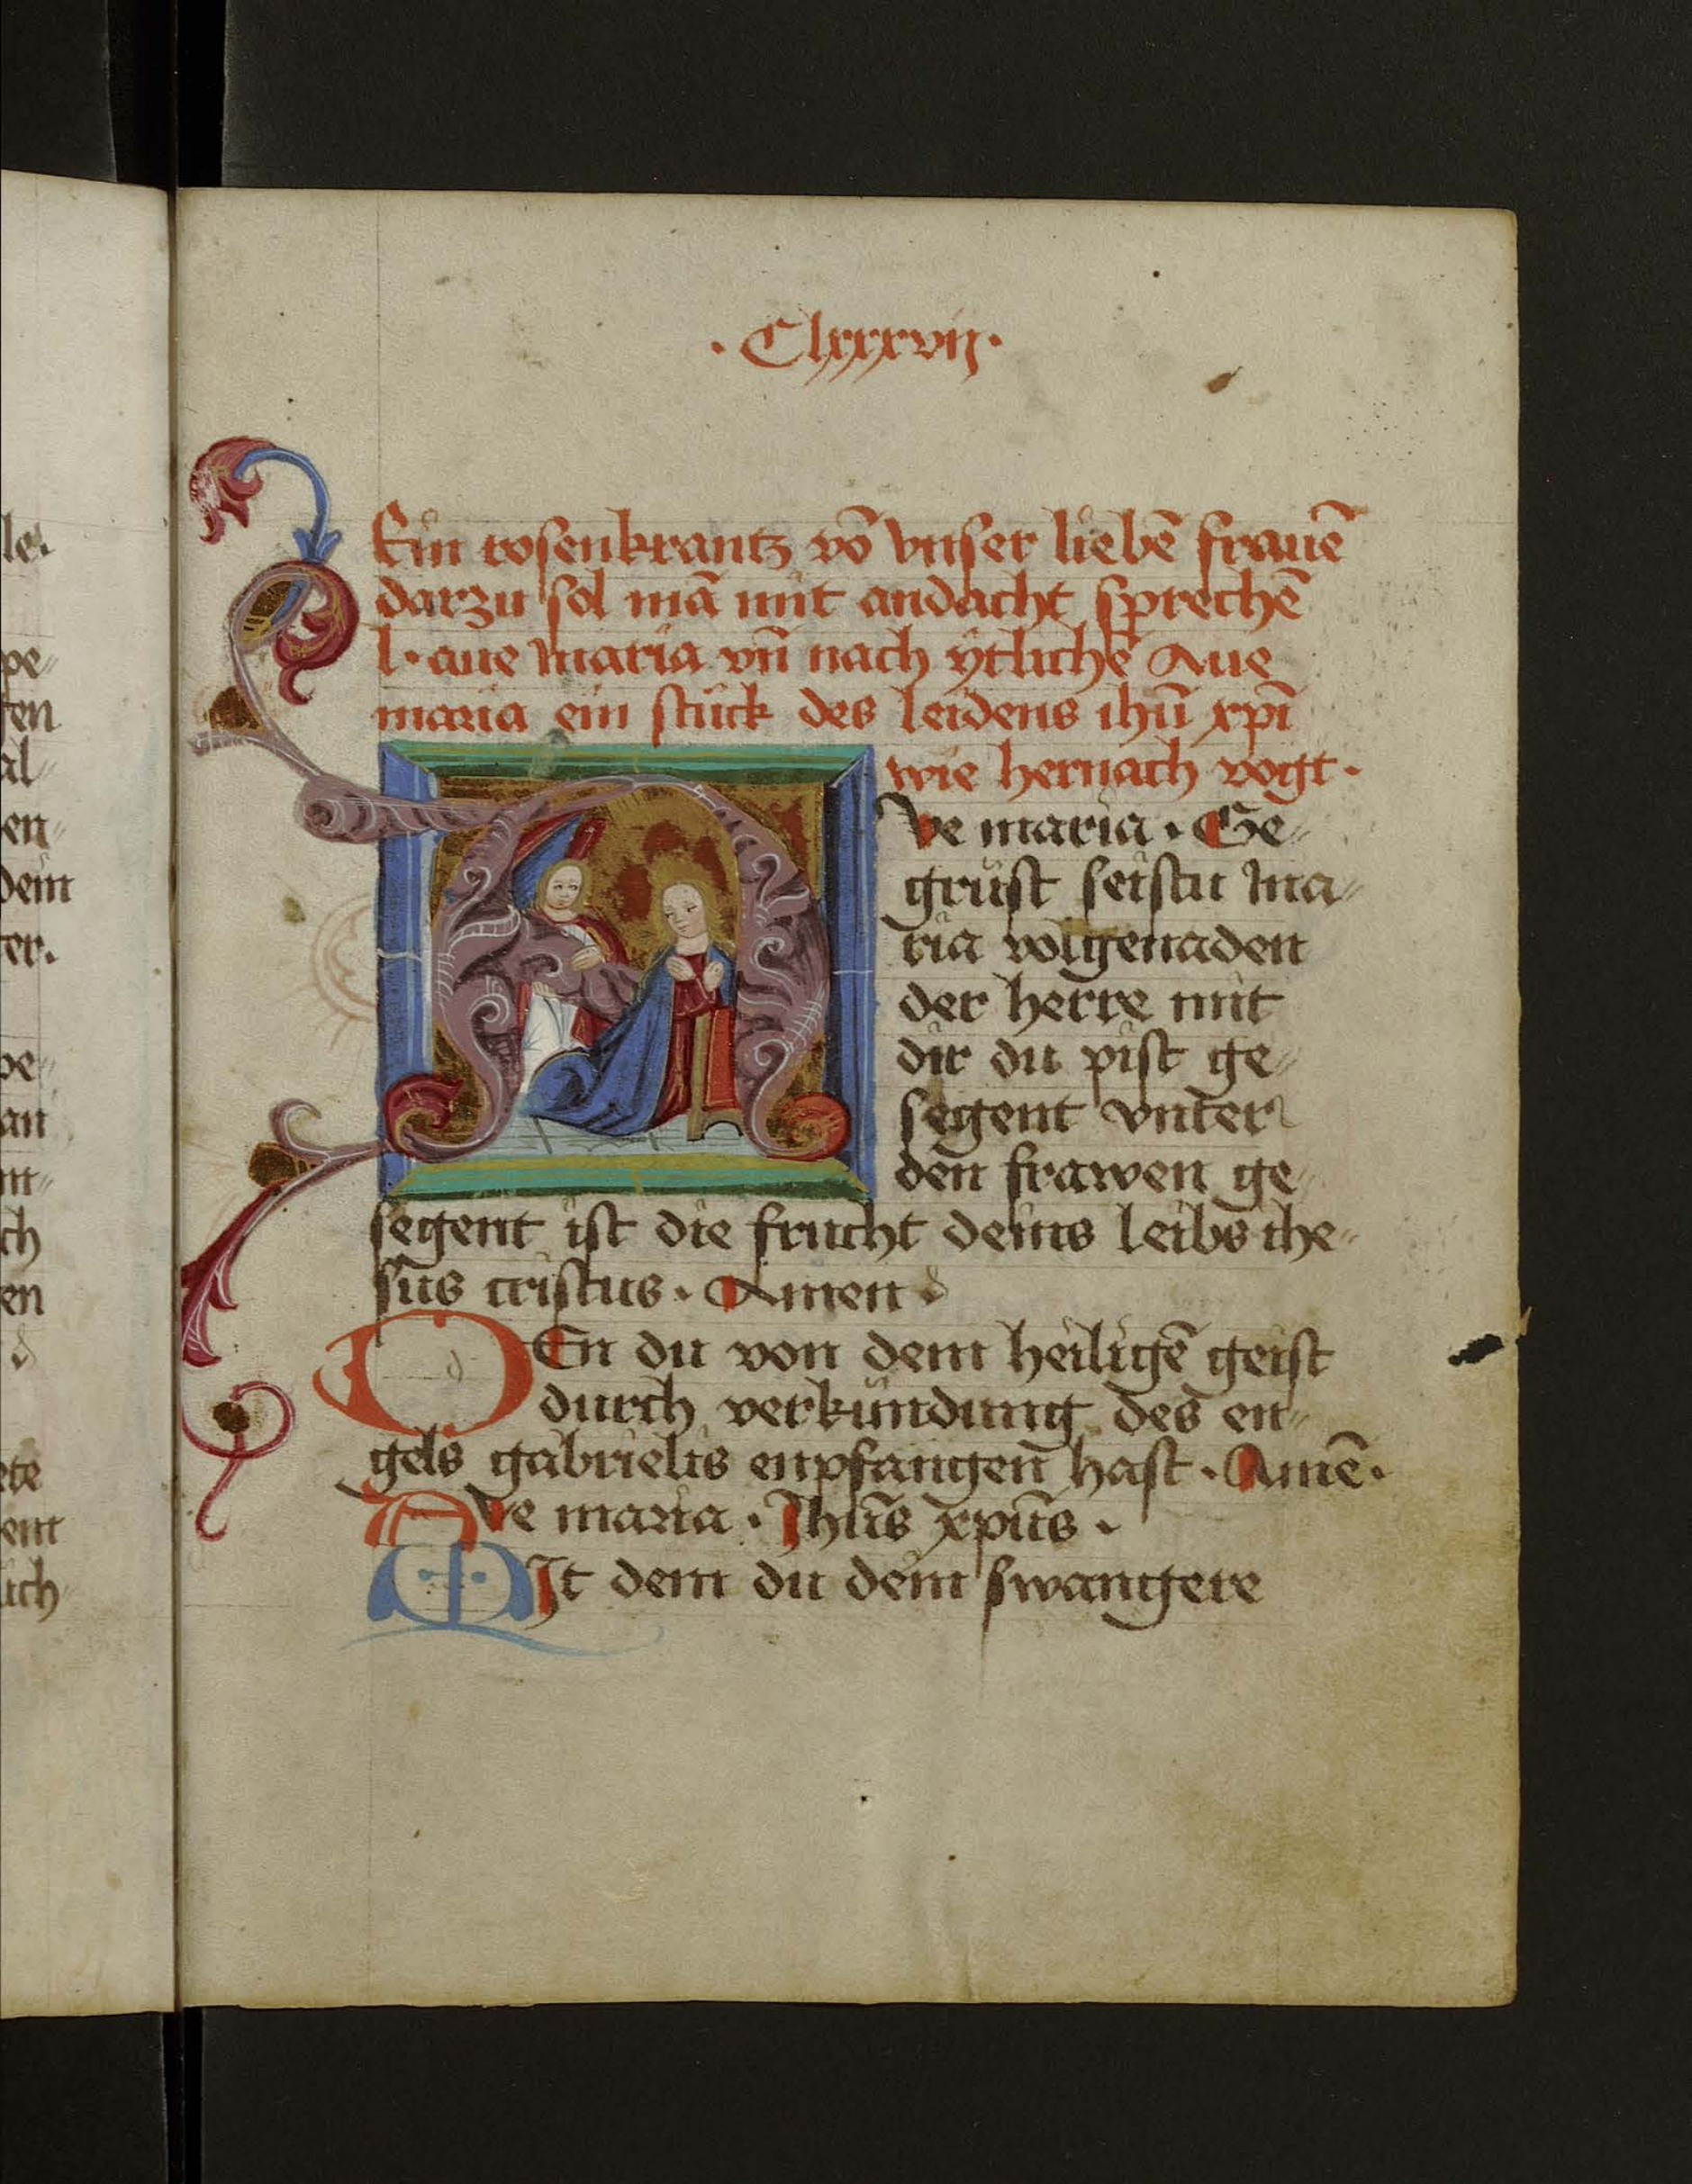 · Clxxxvij ·
Ein rosenkrantz võ vnser liebẽ frauẽ
darzu sol mã mit andacht sprechẽ
l · aue maria vñ nach ytlichẽ Aue
maria ein stück des leidens ihũ xp̃i
wie hernach vogt ·
Ave maria · Ge⸗
grüst seistu ma⸗
ria volgenaden
der herre mit
dir du pist ge⸗
segent vnter
den frawen ge⸗
segent ist die frucht deins leibs ihe⸗
sus cristus · Amen
DEn du von dem heiligẽ geist
durch verkündung des en⸗
gels gabrielis enpfangen hast · Amẽ ·
Ave maria · Jhũs xpũs ·
MJt dem du dein swangere